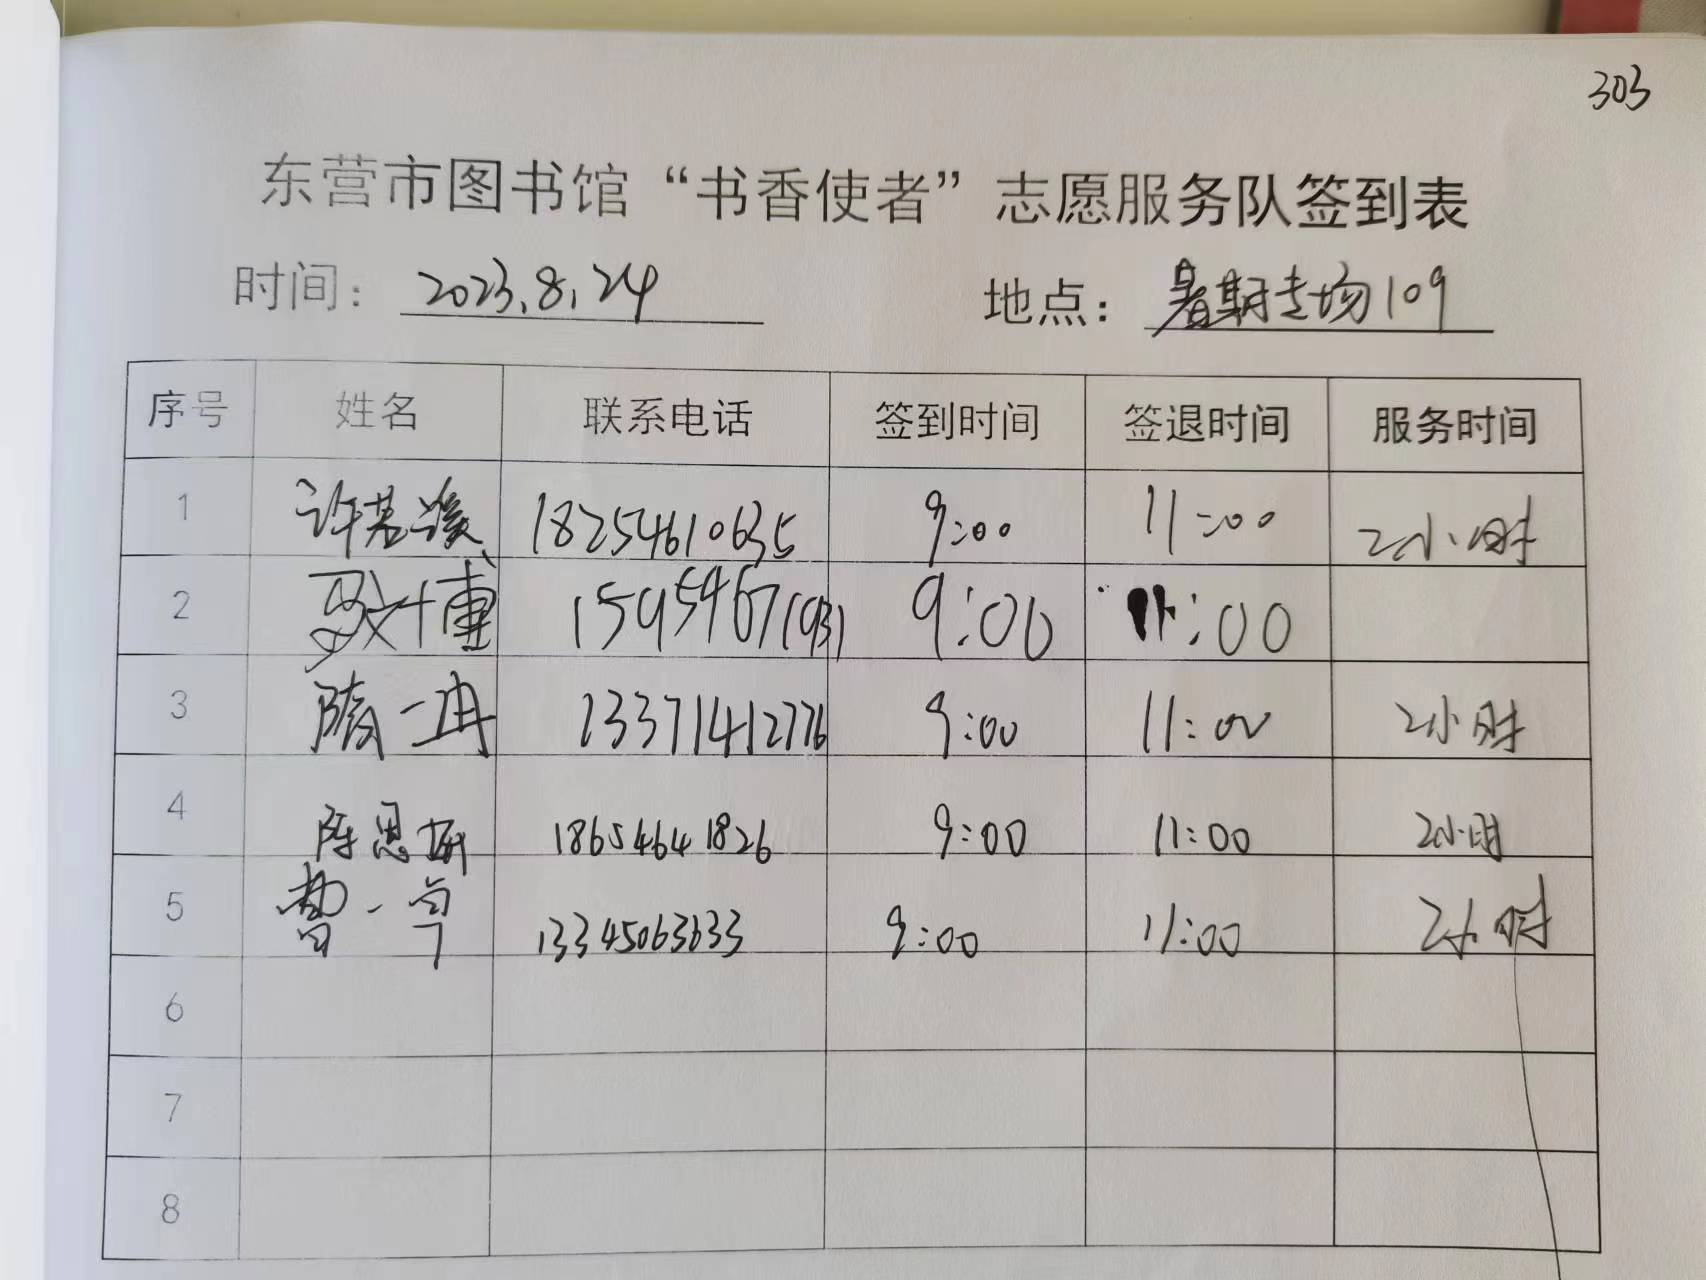 303
东营市图书馆“书香使者”志愿服务队签到表
时间: 2023.8.24 地点: 暑期专场109
序号 姓名 联系电话 签到时间 签退时间 服务时间
1 许若溪 18254610635 9:00 11:00 2小时
2 9:00 11:00
3 隋一冉 13371412776 9:00 11:00 2小时
4 陈思妍 18654641826 9:00 11:00 2小时
5 曹一 13345063633 9:00 11:00 2小时
6
7
8